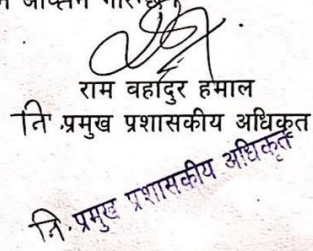 राम बहादुर हमाल
नि .प्रमुख प्रशासकीय अधिकृत
नि. प्रमुख प्रशासकीय अधिकृत